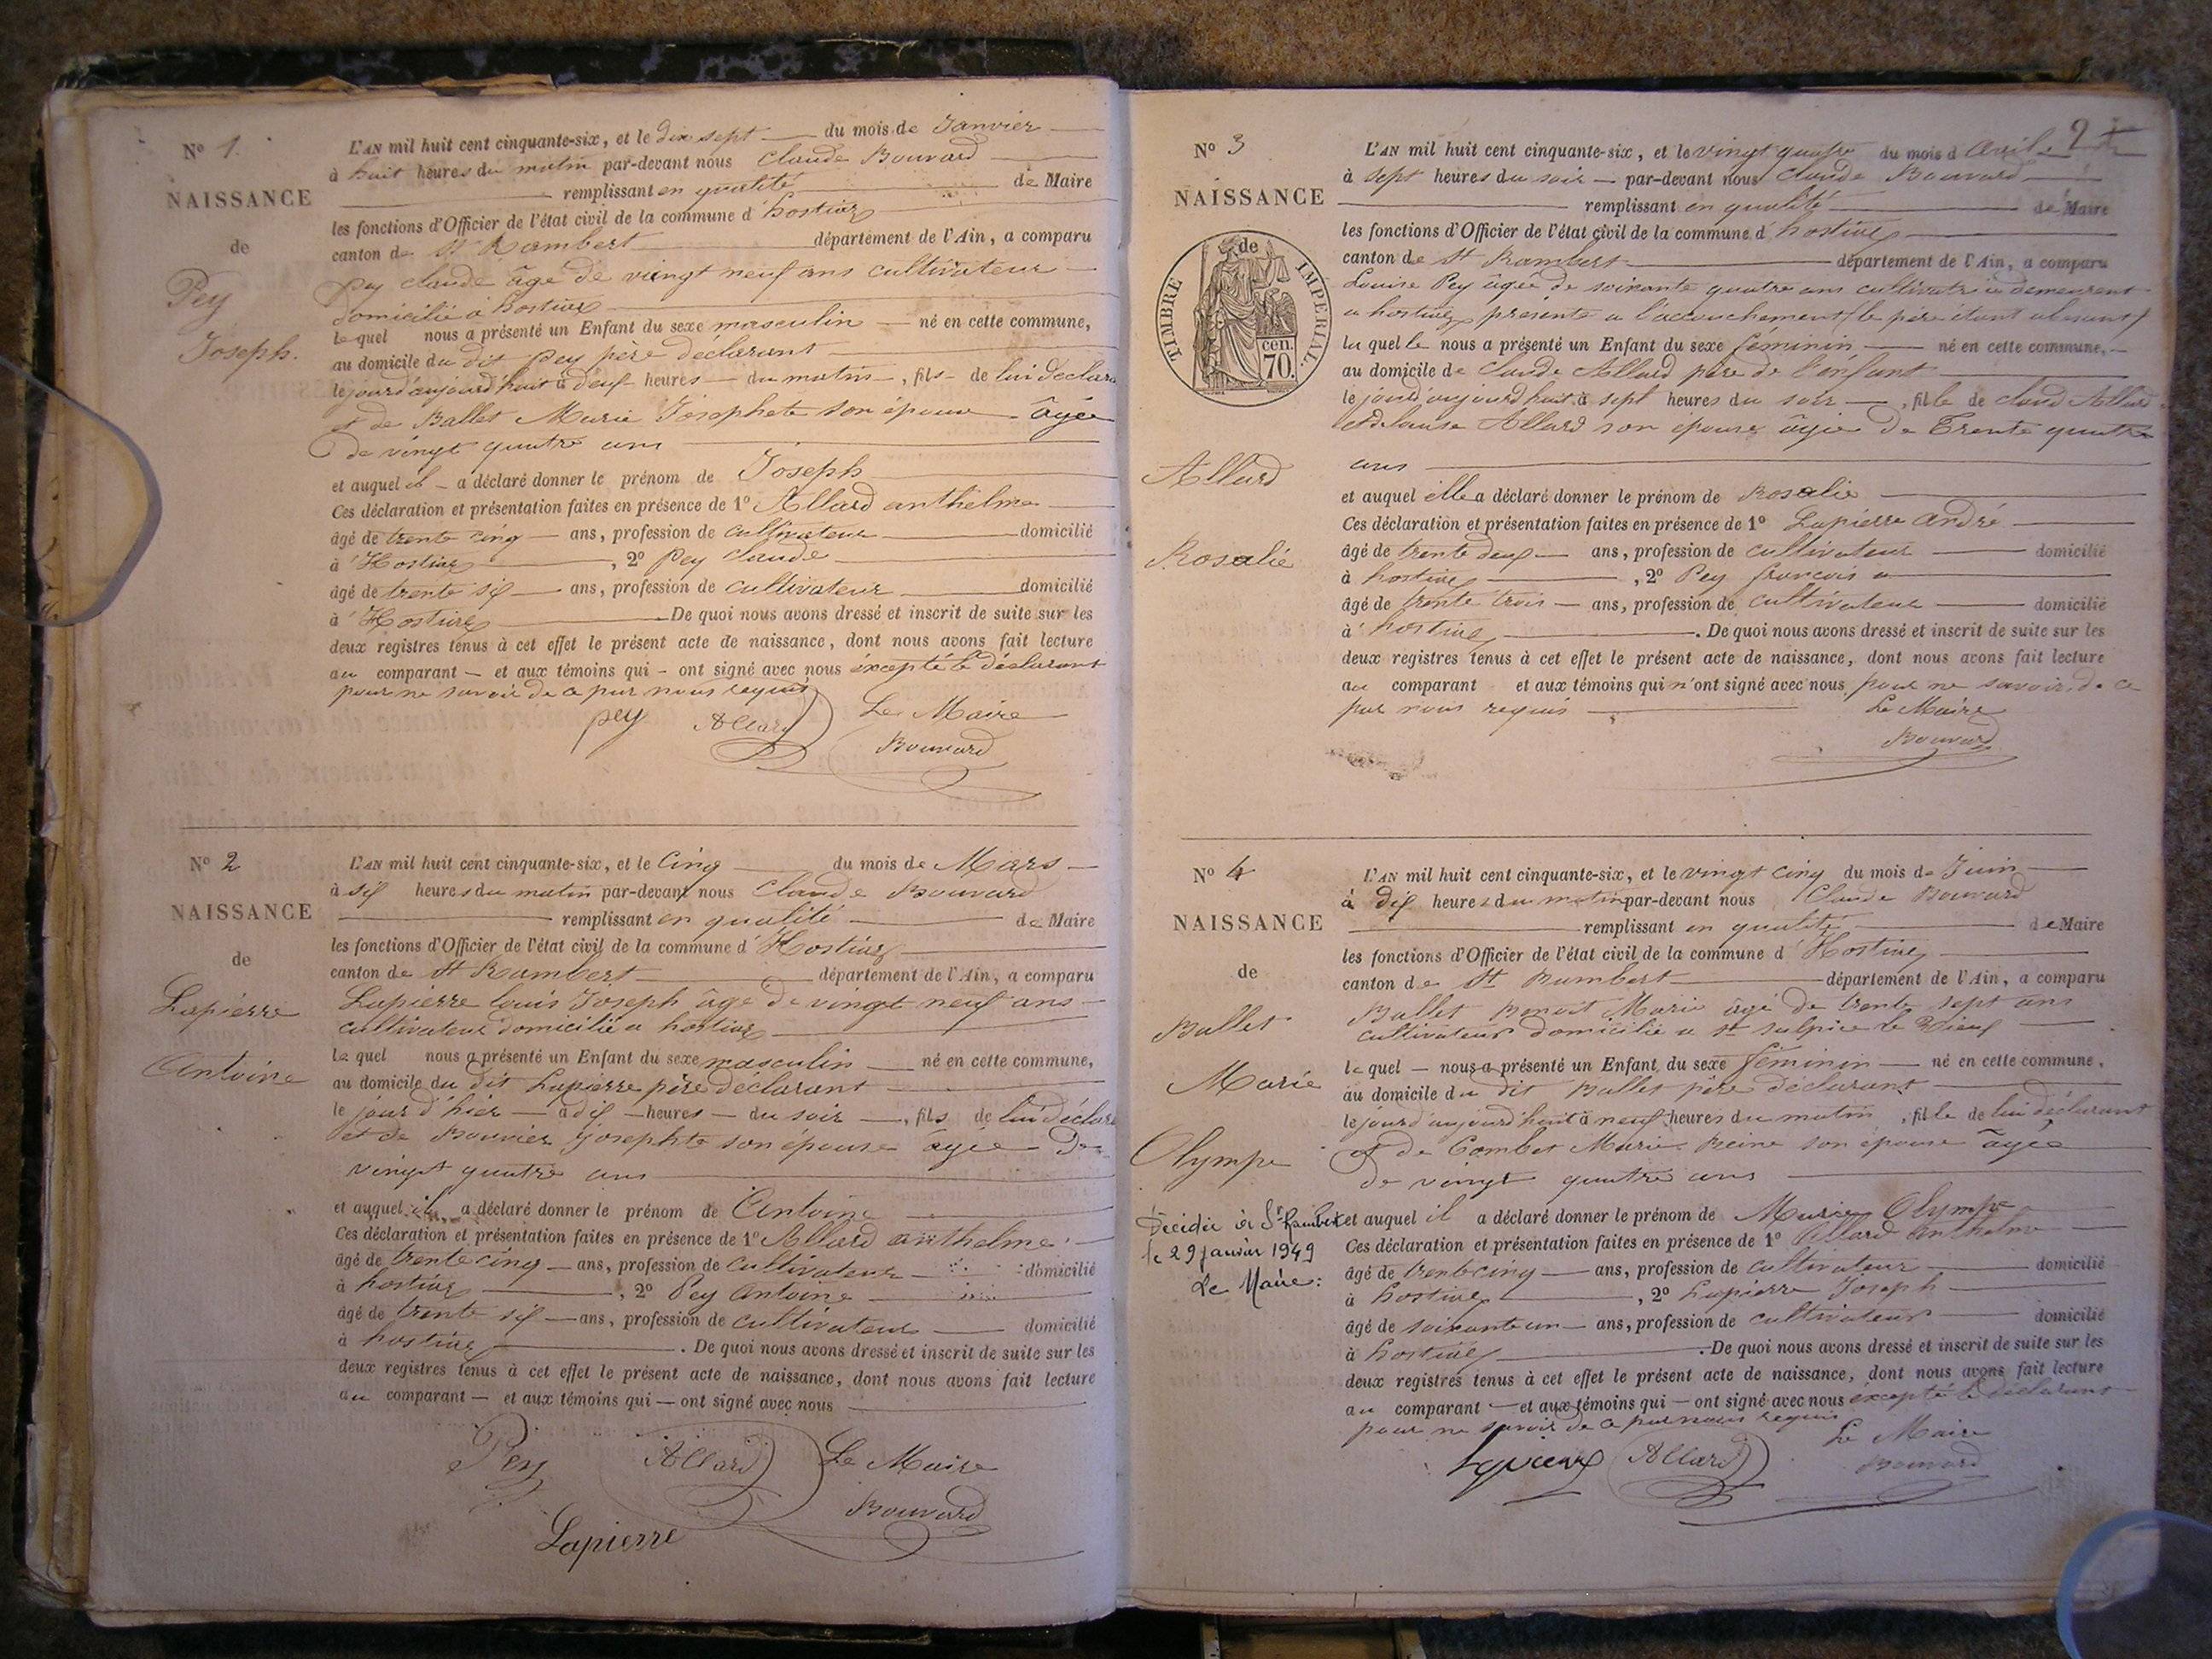 No 1.
NAISSANCE
de
Pey
Joseph.
L'AN mil huit cent cinquante-six, et le dix sept du mois de Janvier
à huit heures du matin par-devant nous Claude Bouvard
remplissant en qualité de Maire
les fonctions d'Officier de l'état civil de la commune d'hostiaz
canton de St Rambert département de l'Ain, a comparu
Pey claude âgé de vingt neuf ans cultivateur
domicilié à hostiaz
lequel nous a présenté un Enfant du sexe masculin né en cette commune,
au domicile du dit Pey père déclarant
le jourd'aujourd'huit à deux heures du matin, fils de lui déclara
et de Ballet Marie Josephete son épouse âgée
de vingt quatre ans
et auquel il a déclaré donner le prénom de Joseph
Ces déclaration et présentation faites en présence de 1o Allard anthelme
âgé de trente cinq ans, profession de cultivateur domicilié
à Hostiaz, 2o Pey Claude
âgé de trente six ans, profession de cultivateur domicilié
à Hostiaz De quoi nous avons dressé et inscrit de suite sur les
deux registres tenus à cet effet le présent acte de naissance, dont nous avons fait lecture
au comparant et aux témoins qui ont signé avec nous éxcepté le déclarant
pour ne savoir de ce par nous requis
pey Allard Le Maire
Bouvard
No 2
NAISSANCE
de
Lapierre
Antoine
L'AN mil huit cent cinquante-six, et le Cinq du mois de Mars
à six heures du matin par-devant nous Claude Bouvard
remplissant en qualité de Maire
les fonctions d'Officier de l'état civil de la commune d'Hostiaz
canton de St Rambert département de l'Ain, a comparu
Lapierre louis Joseph âgé de vingt neuf ans
cultivateur domicilié a hostiaz
lequel nous a présenté un Enfant du sexe masculin né en cette commune,
au domicile du dit Lapierre père déclarant
le jour d'hier à dix heures du soir, fils de lui déclara
et de Bouvier josephte son épouse âgée de
vingt quatre ans
et auquel il a déclaré donner le prénom de Antoine
Ces déclaration et présentation faites en présence de 1o Allard anthelme
âgé de trente cinq ans, profession de cultivateur domicilié
à hostiaz, 2o Pey Antoine
âgé de trente six ans, profession de cultivateur domicilié
à hostiaz. De quoi nous avons dressé et inscrit de suite sur les
deux registres tenus à cet effet le présent acte de naissance, dont nous avons fait lecture
au comparant et aux témoins qui ont signé avec nous
Pey Allard Le Maire
Bouvard
Lapierre
2
No 3
NAISSANCE
de
TIMBRE IMPERIAL.
cen.
70.
Allard
Rosalie
L'AN mil huit cent cinquante-six, et le vingt quatre du mois d'Avril
à sept heures du soir par-devant nous Claude Bouvard
remplissant en qualité de Maire
les fonctions d'Officier de l'état civil de la commune d'hostiaz
canton de St Rambert département de l'Ain, a comparu
Louise Pey âgée de soixante quatre ans cultivatrice demeurant
a hostiaz présente a l'accouchement (le père étant absent)
laquelle nous a présenté un Enfant du sexe féminin né en cette commune,
au domicile de Claude Allard père de l'énfant
le jourd'aujourd'huit à sept heures du soir, fille de claud Allard
et de louise Allard son épouse âgée de Trente quatre
ans
et auquel elle a déclaré donner le prénom de Rosalie
Ces déclaration et présentation faites en présence de 1o Lapierre André
âgé de trente deux ans, profession de cultivateur domicilié
à hostiaz, 2o Pey françois
âgé de trente trois ans, profession de cultivateur domicilié
à hostiaz. De quoi nous avons dressé et inscrit de suite sur les
deux registres tenus à cet effet le présent acte de naissance, dont nous avons fait lecture
au comparant et aux témoins qui n'ont signé avec nous pour ne savoir de ce
par nous requis Le Maire
Bouvard
No 4
NAISSANCE
de
Ballet
Marie
Olympe
Décidée à St Rambert
le 29 janvier 1949
Le Maire:
L'AN mil huit cent cinquante-six, et le vingt cinq du mois de Juin
à dix heures du matin par-devant nous Claude Bouvard
remplissant en qualité de Maire
les fonctions d'Officier de l'état civil de la commune d'Hostiaz
canton de St Rambert département de l'Ain, a comparu
Ballet Benoit Marie âgé de trente sept ans
cultivateur domicilié a St sulpice le Vieux
lequel nous a présenté un Enfant du sexe féminin né en cette commune,
au domicile du dit Ballet père déclarant
le jourd'aujourd'huit à neuf heures du matin, fille de lui déclarant
et de Combet Marie Reine son épouse âgée
de vingt quatre ans
et auquel il a déclaré donner le prénom de Marie Olympe
Ces déclaration et présentation faites en présence de 1o Allard Anthelme
âgé de trente cinq ans, profession de cultivateur domicilié
à hostiaz, 2o Lapierre Joseph
âgé de soixante un ans, profession de cultivateur domicilié
à hostiaz. De quoi nous avons dressé et inscrit de suite sur les
deux registres tenus à cet effet le présent acte de naissance, dont nous avons fait lecture
au comparant et aux témoins qui ont signé avec nous éxcepté le déclarant
pour ne savoir de ce par nous requis
Allard Le Maire
Bouvard